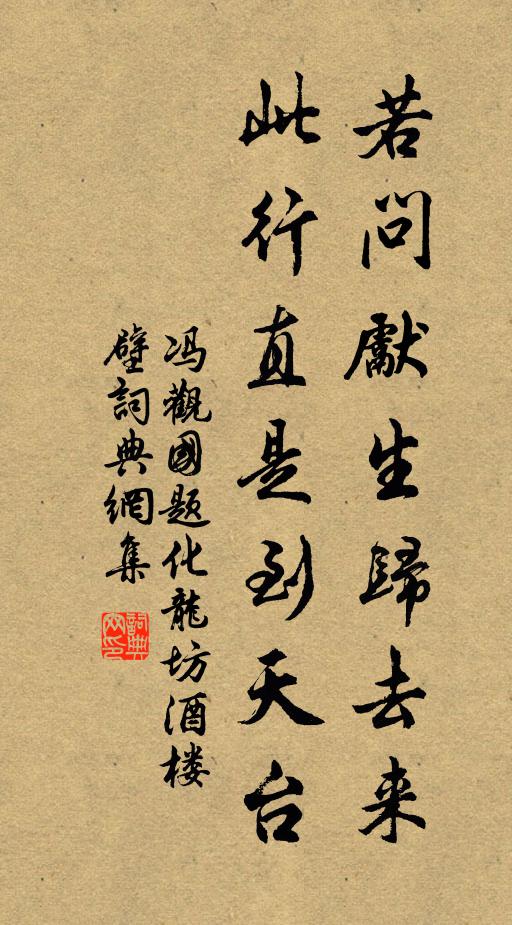 若問獻生歸去来
此行直是到天台
冯觀國题化龍坊酒楼
壁詞典網集
詞典网印